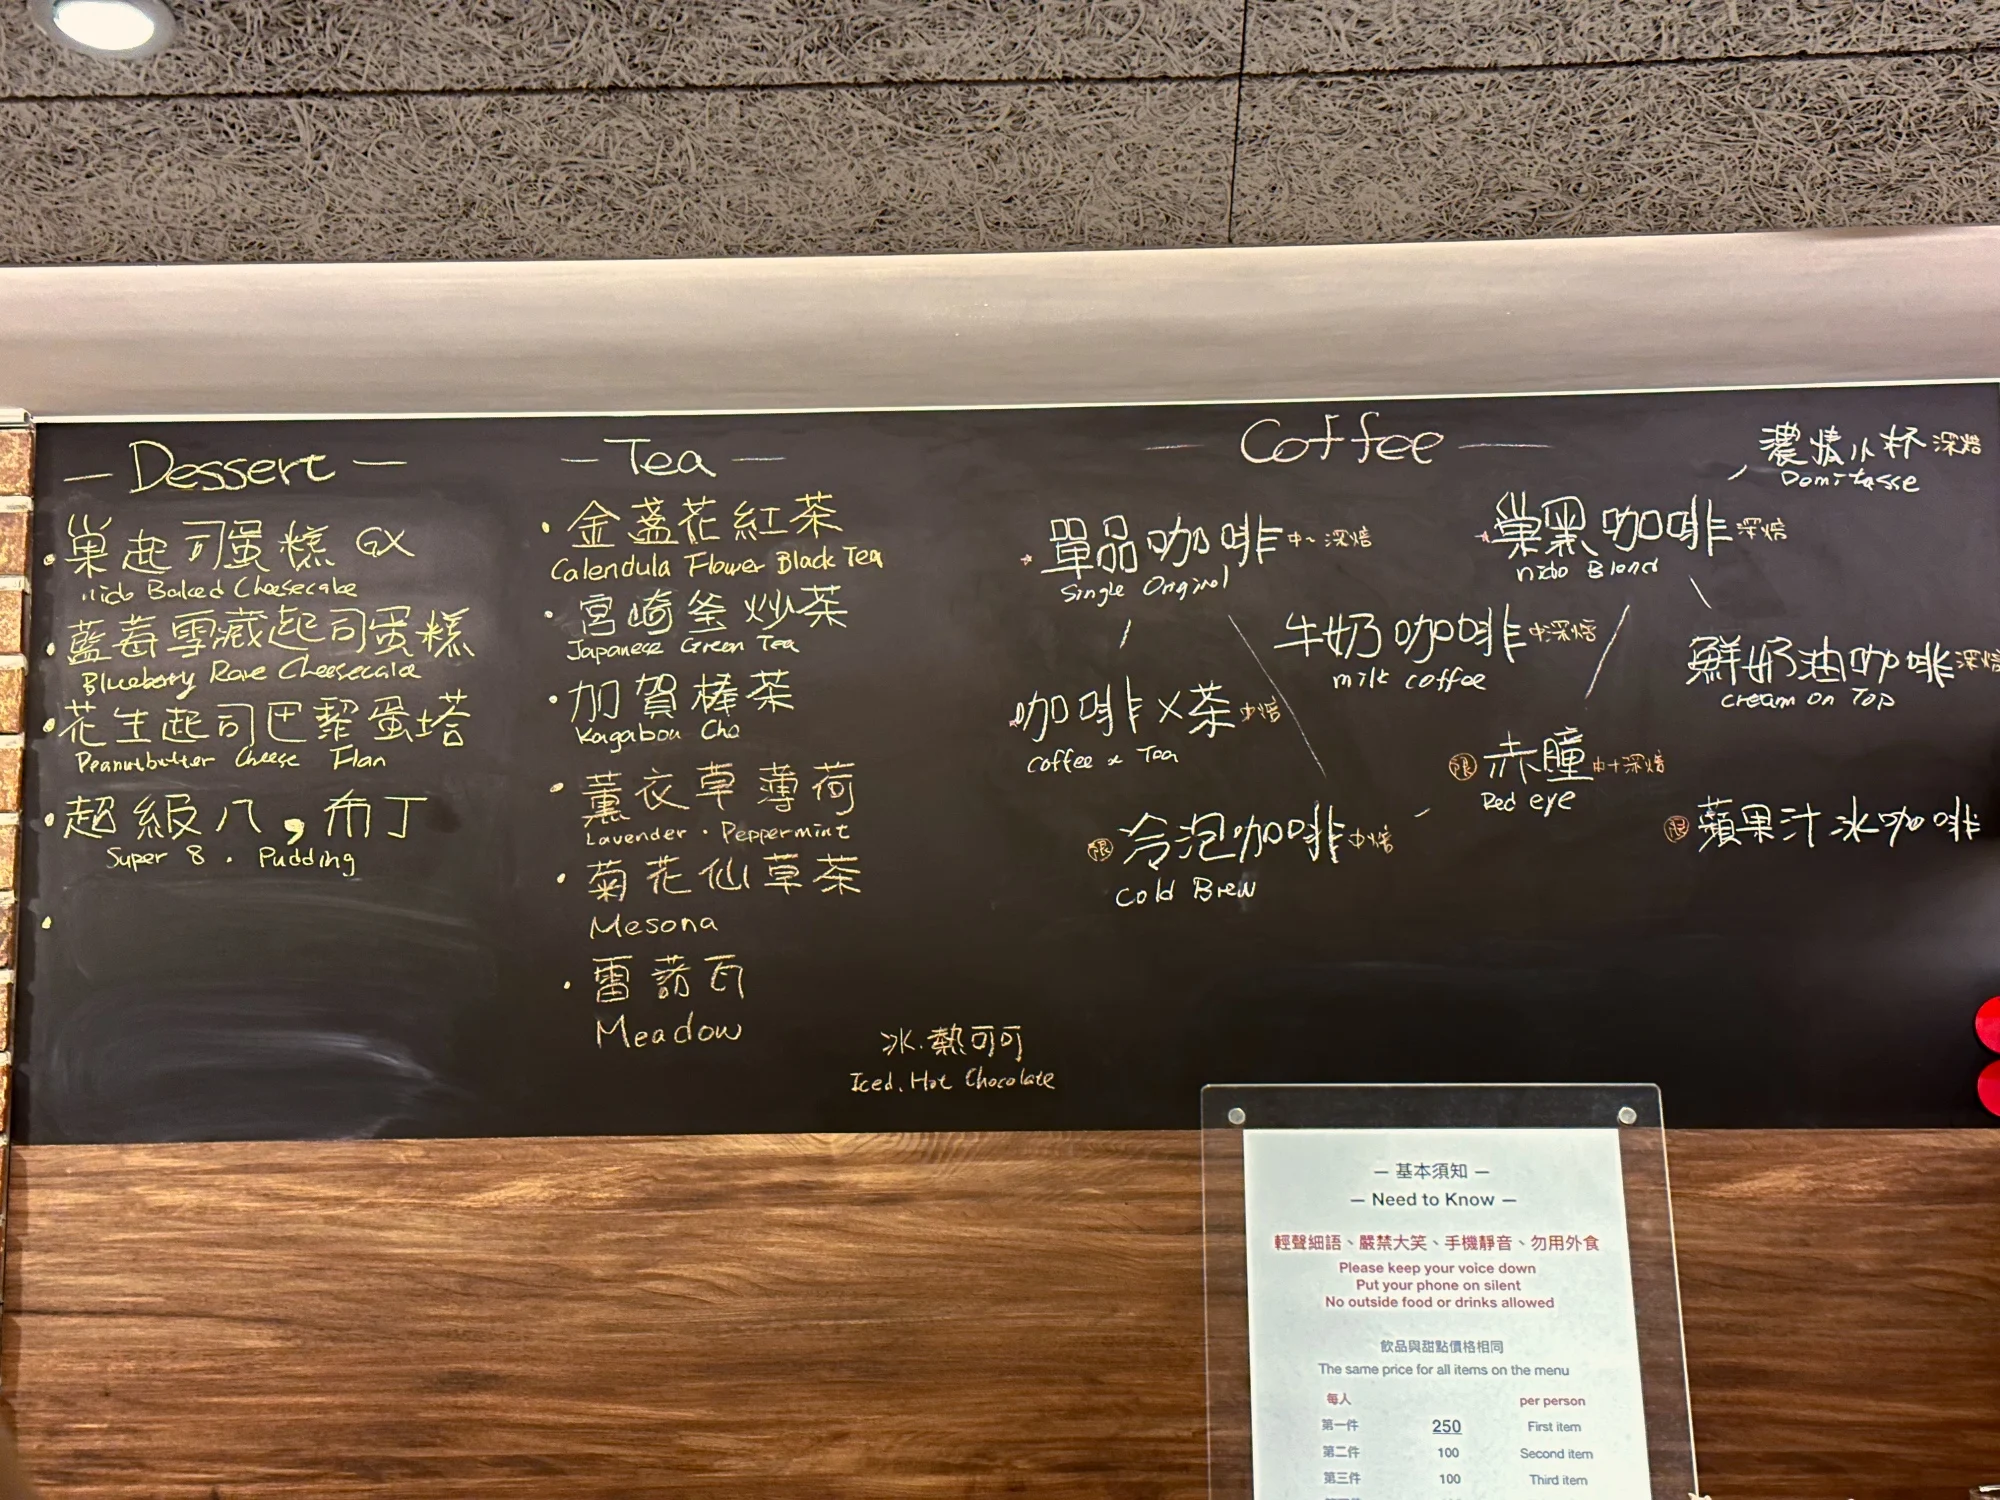 — Dessert —
巢起司蛋糕 GX
nido Baked Cheesecake
藍莓雪藏起司蛋糕
Blueberry Rare Cheesecake
花生起司巴黎蛋塔
Peanutbutter Cheese Flan
超級八,布丁
Super 8 . Pudding
— Tea —
金盞花紅茶
Calendula Flower Black Tea
宮崎釜炒茶
Japanese Green Tea
加賀棒茶
Kagabou Cha
薰衣草薄荷
Lavender . Peppermint
菊花仙草茶
Mesona
雷諾瓦
Meadow
冰.熱可可
Iced. Hot Chocolate
— Coffee —
單品咖啡 中~深焙
Single Original
咖啡×茶 中焙
Coffee × Tea
限 冷泡咖啡 中焙
Cold Brew
牛奶咖啡 中深焙
milk coffee
巢黑咖啡 深焙
nido Blend
濃情小杯 深焙
Domitasse
鮮奶油咖啡 深焙
Cream on Top
限 赤瞳 中+深焙
Red eye
限 蘋果汁冰咖啡
— 基本須知 —
— Need to Know —
輕聲細語、嚴禁大笑、手機靜音、勿用外食
Please keep your voice down
Put your phone on silent
No outside food or drinks allowed
飲品與甜點價格相同
The same price for all items on the menu
每人 per person
第一件 250 First item
第二件 100 Second item
第三件 100 Third item